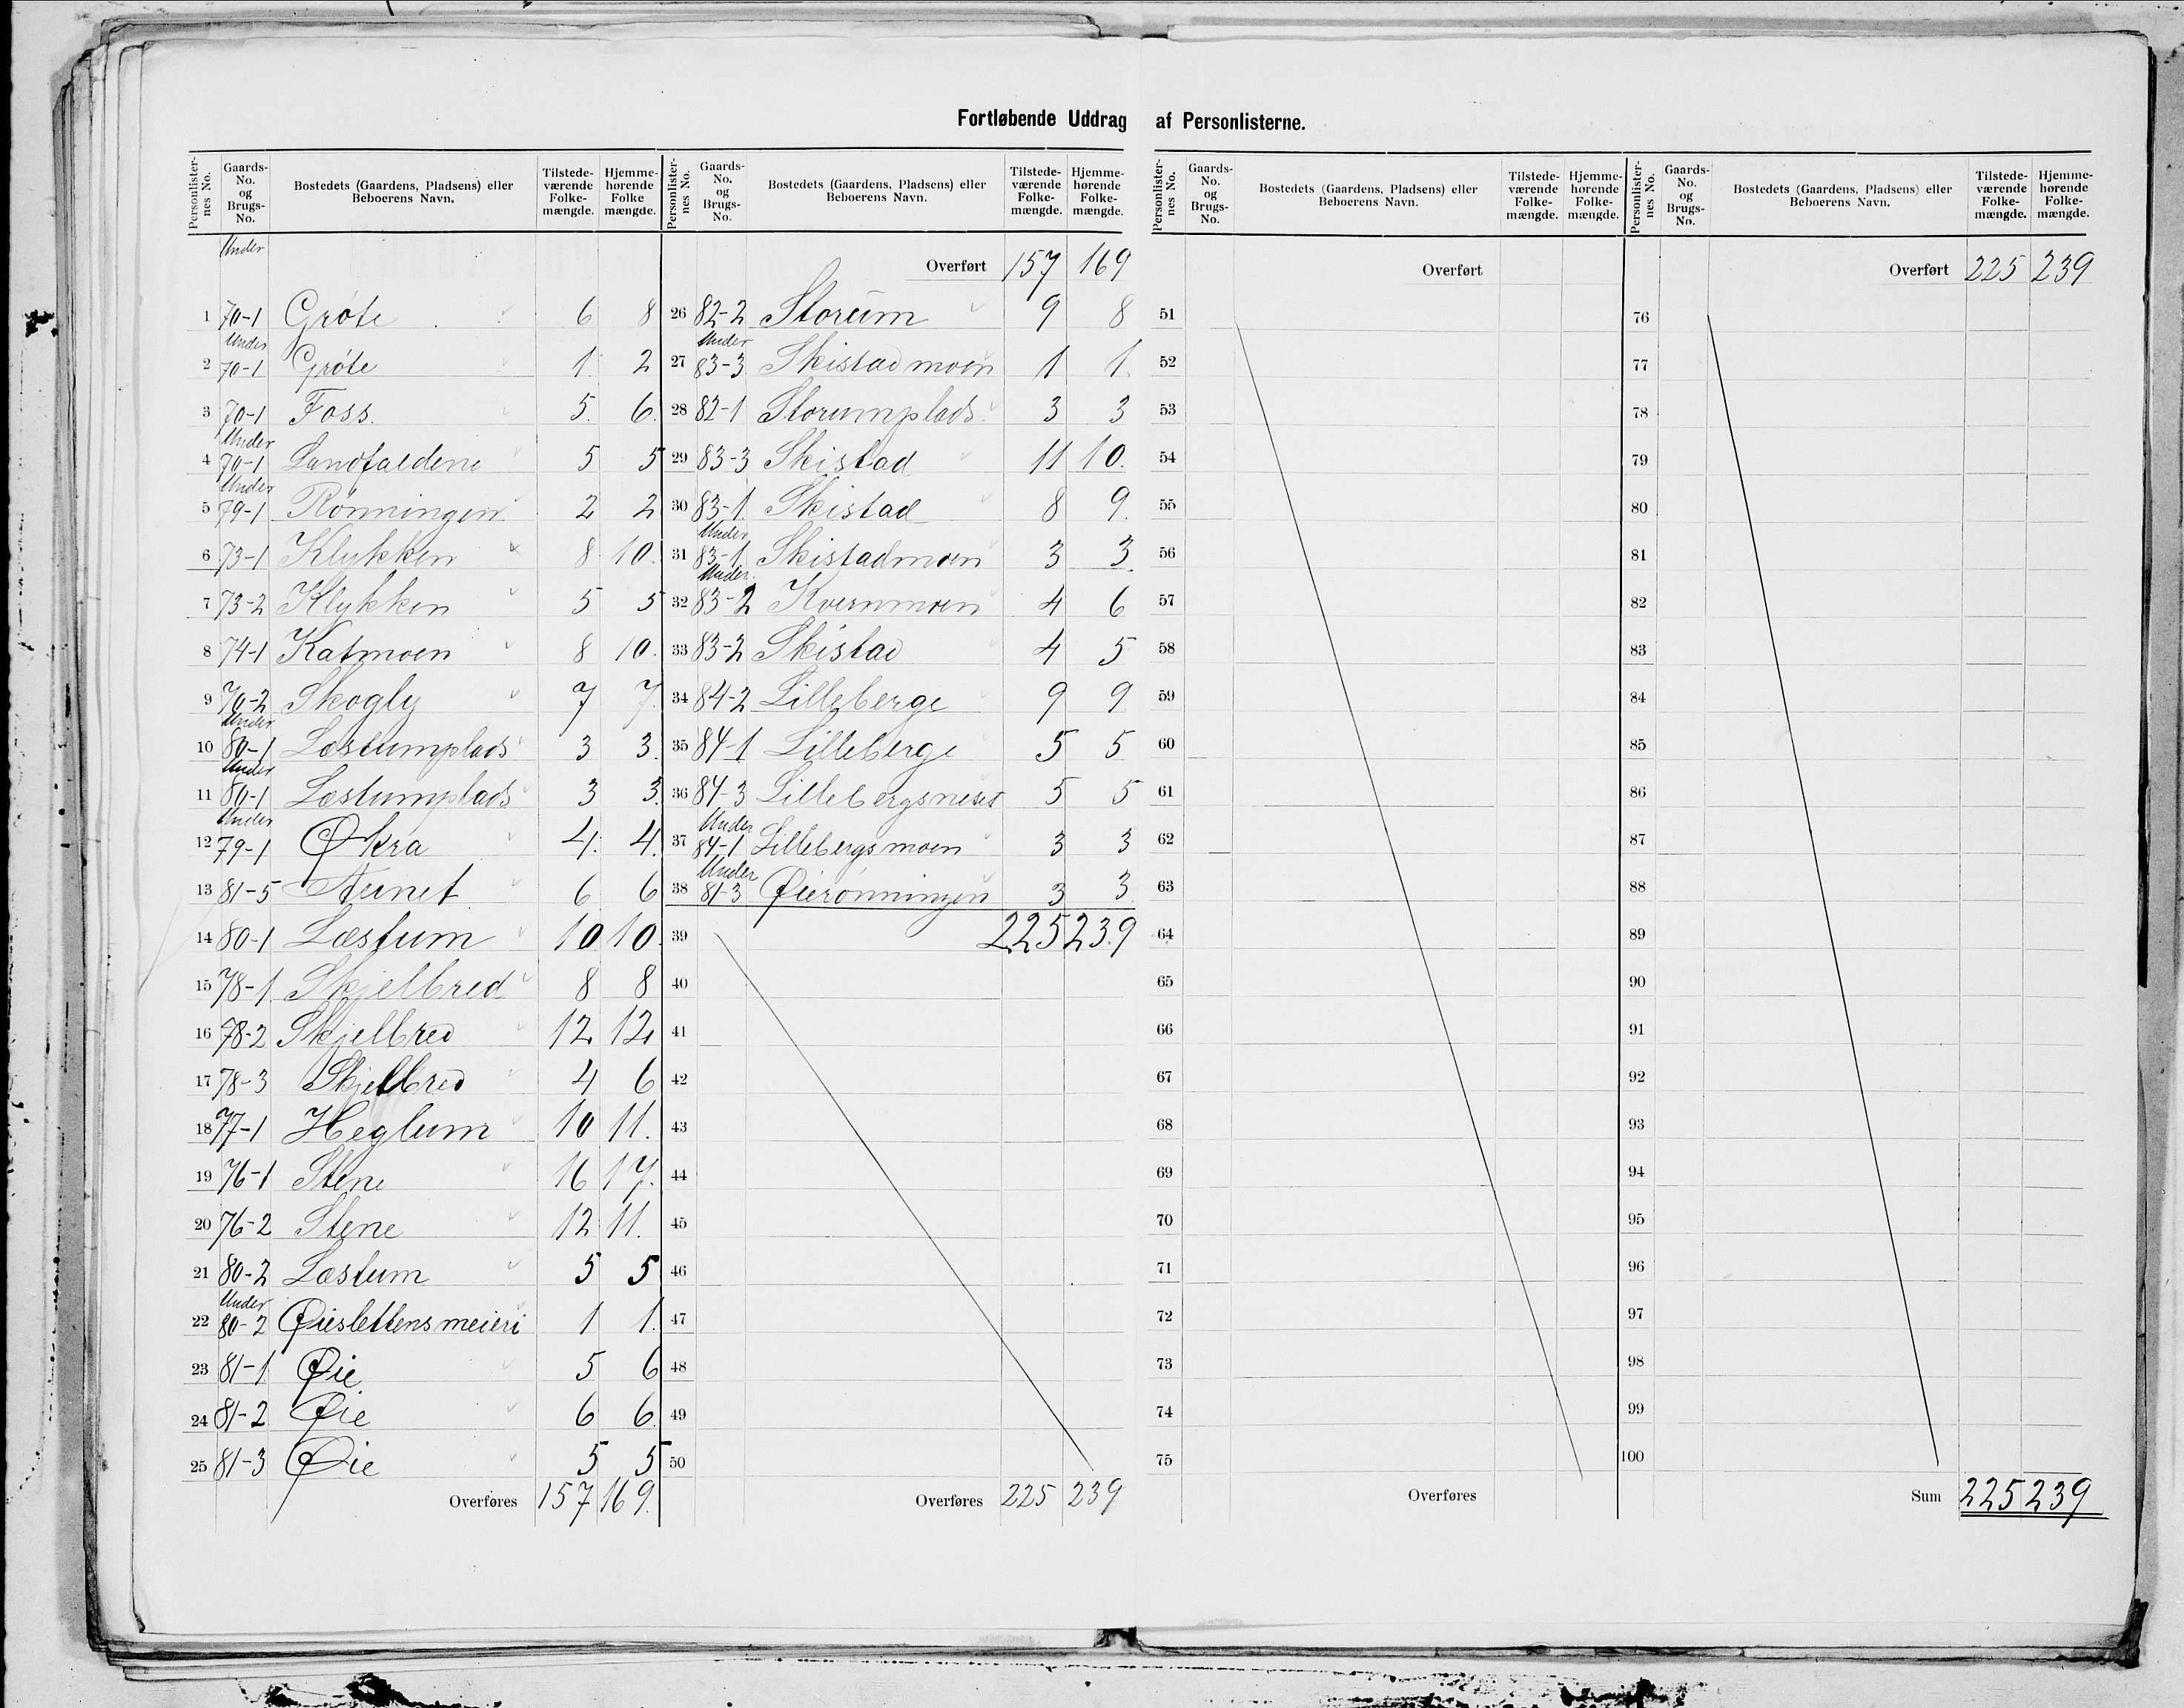 Fortløbende Uddrag af Personlisternes.
Personlister-nes No. Gaards-No. og Brugs-No. Bostedets (Gaardens, Pladsens) eller Beboerens Navn. Tilstede-værende Folke-mængde. Hjemme-hørende Folke mængde.
Under
1 70-1 Grøte 6 8
Under
2 70-1 Grøte 1 2
3 70-1 Foss. 5. 6.
Under
4 70-1 Landfaldene 5 5
Under
5 79-1 Rønningen 2 2
6 73-1 Klykken 8 10.
7 73-2 Klykken 5 5
8 74-1 Katmoen 8 10.
9 70-2 Skogly 7 7.
Under
10 80-1 Læstumplads 3 3.
Under
11 80-1 Læstumplads 3 3.
Under
12 79-1 Økra 4. 4.
13 81-5 Aunet 6 6
14 80-1 Læstum 10 10.
15 78-1 Skjelbred 8 8
16 78-2 Skjelbred 12 12
17 78-3 Skjelbred 4 6
18 77-1 Heglum 10 11.
19 76-1 Stene 16 17.
20 76-2 Stene 12 11.
21 80-2 Læstum 5 5
Under
22 80-2 Øieslettens meieri 1 1.
23 81-1 Øie 5 6
24 81-2 Øie 6 6.
25 81-3 Øie 5 5
Overføres 157 169.
Personlister-nes No. Gaards-No. og Brugs-No. Bostedets (Gaardens, Pladsens) eller Beboerens Navn. Tilstede-værende Folke-mængde. Hjemme-hørende Folke-mængde.
Overført 157 169
26 82-2 Storum 9 8
Under
27 83-3 Skistadmoen 1 1.
28 82-1 Storumplads. 3 3
29 83-3 Skistad 11 10.
30 83-1 Skistad 8 9.
Under
31 83-1 Skistadmoen 3 3.
Under
32 83-2 Kvernmoen 4 6
33 83-2 Skistad 4 5
34 84-2 Lilleberge 9 9
35 84-1 Lilleberge 5 5
36 84-3 Lillebergsneset 5 5
Under
37 84-1 Lillebergsmoen 3 3
Under
38 81-3 Øierønningen 3 3
39 225 239
40
41
42
43
44
45
46
47
48
49
50
Overføres 225 239
Personlister-nes No. Gaards-No. og Brugs-No. Bostedets (Gaardens, Pladsens) eller Beboerens Navn. Tilstede-værende Folke-mængde. Hjemme-hørende Folke-mængde.
Overført
51
52
53
54
55
56
57
58
59
60
61
62
63
64
65
66
67
68
69
70
71
72
73
74
75
Overføres
Personlister-nes No. Gaards-No. og Brugs-No. Bostedets (Gaardens, Pladsens) eller Beboerens Navn. Tilstede-værende Folke-mængde. Hjemme-hørende Folke-mængde.
Overført 225 239
76
77
78
79
80
81
82
83
84
85
86
87
88
89
90
91
92
93
94
95
96
97
98
99
100
Sum 225 239